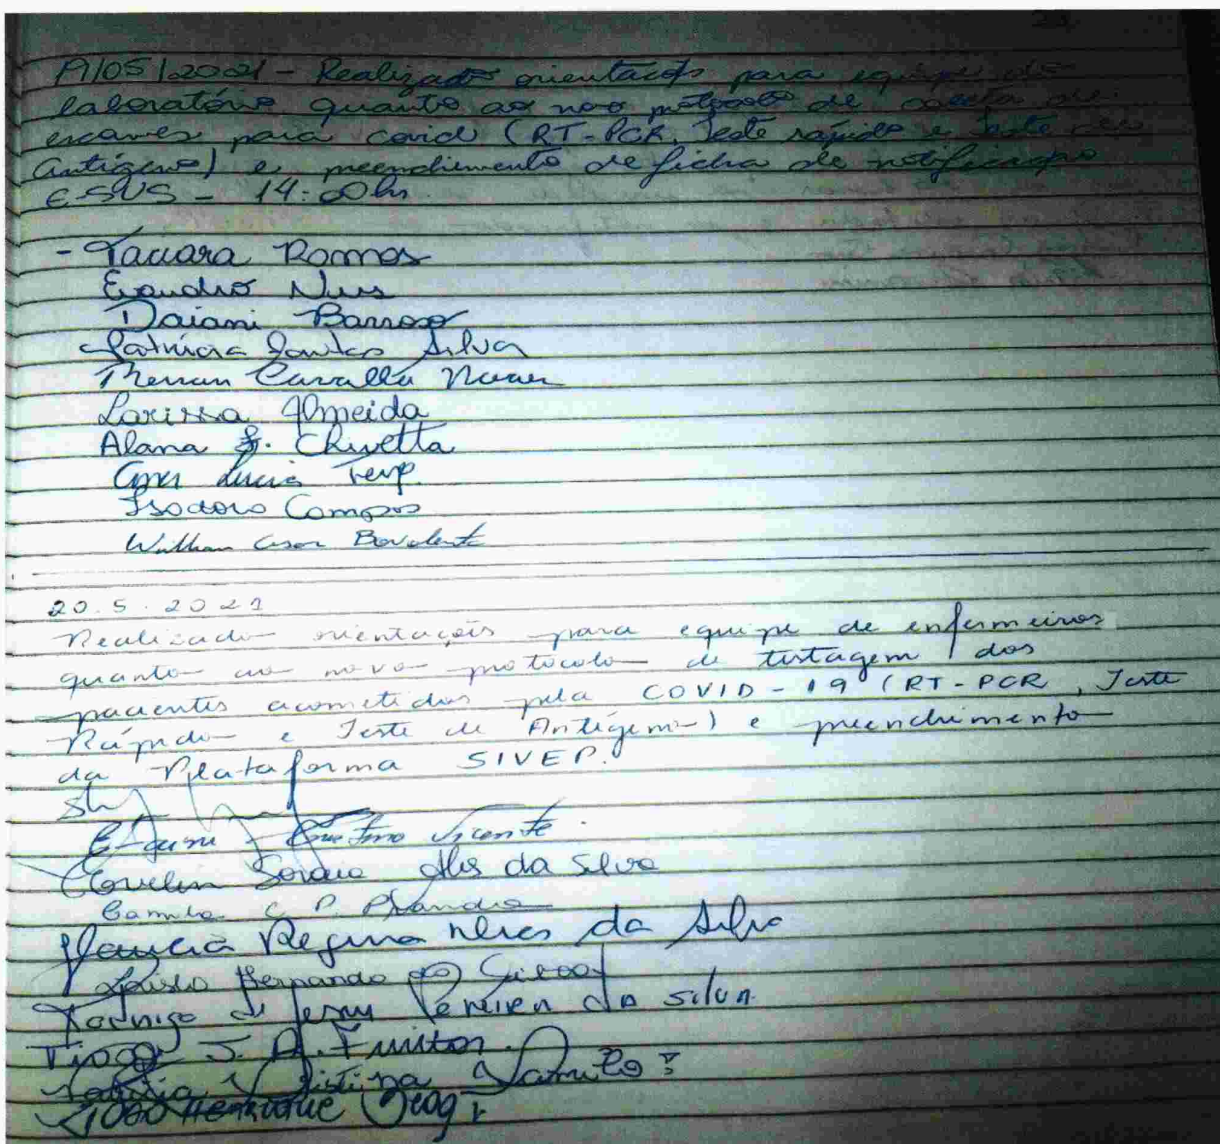 19/05/2021 - Realizado orientações para equipe do
laboratório quanto ao novo protocolo de coleta de
exames para covid (RT-PCR, Teste rápido e Teste de
Antígeno) e preenchimento de ficha de notificação
E-SUS - 14:00hs
- Taciara Ramos
Evandro
Daiani Barroso
Patricia Santos Silva
Larissa Almeida
Alana
Lucia
Isodoro Campos
Willian Cesar
20.5.2021
Realizado orientações para equipe de enfermeiros
quanto ao novo protocolo de testagem dos
pacientes acometidos pela COVID-19 (RT-PCR, Teste
Rápido e Teste de Antígeno) e preenchimento
da Plataforma SIVEP.
Vicente
da Silva
Camila C. P.
Regina da Silva
Fernando
Rodrigo de Jesus Pereira da Silva
Tiago J. A.
Cristina
João Henrique